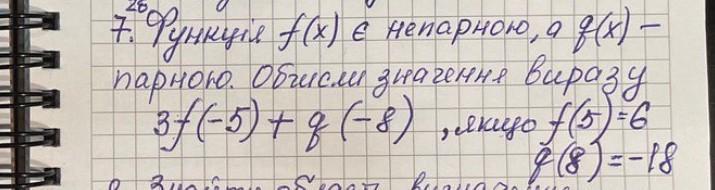 26
7. Функція f(x) є непарною, а q(x) –
парною. Обчисли значення виразу
3f(-5) + q(-8), якщо f(5)=6
q(8)=-18